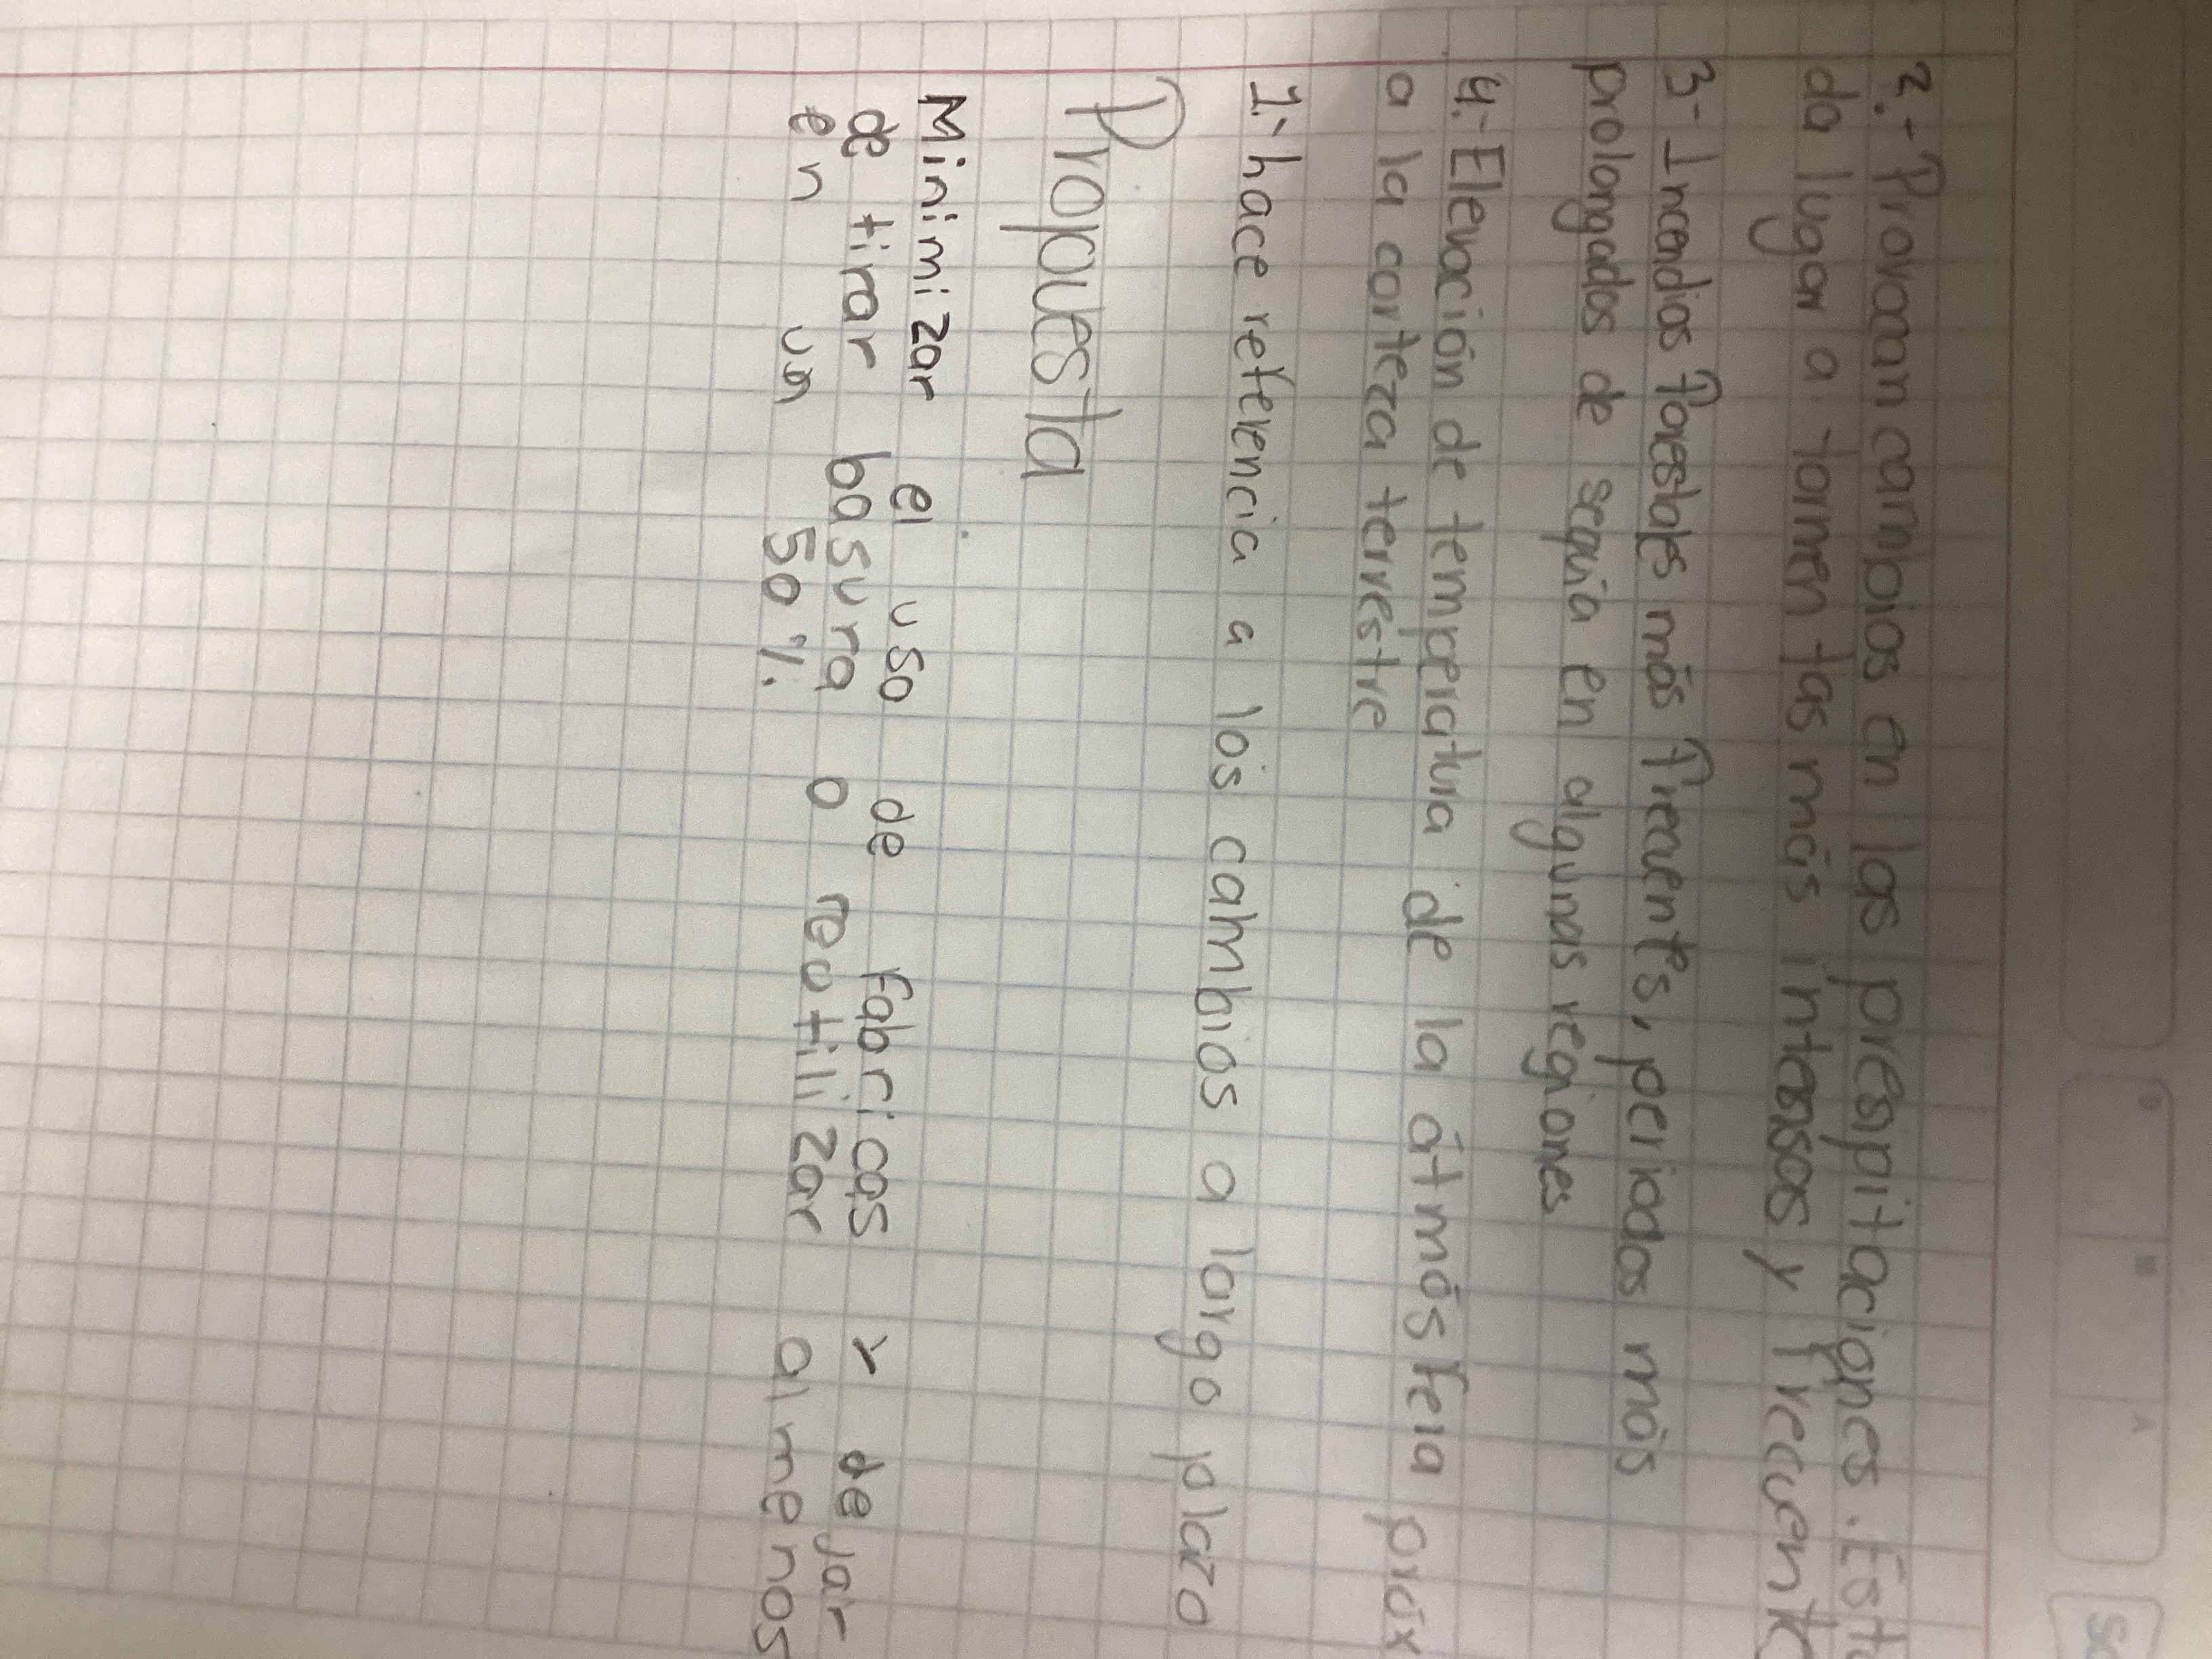 2.- Provocan cambios en las prespitaciones. Est
da lugar a tormentas más intensas y frecuente
3- Incendios forestales más frecuentes, periodos más
prolongados de sequía en algunas regiones
4.- Elevación de temperatura de la átmósfera próx
a la corteza terrestre
1.- hace referencia a los cambios a largo plazo
Propuesta
Minimizar el uso de fabricas y dejar
de tirar basura o reutilizar almenos
en un 50%.